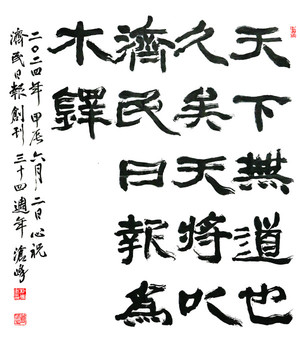 天下無道也
久矣天將以
濟民日報為
木鐸
二〇二四年 甲辰 六月 二日 心祝
濟民日報創刊 三十四週年 滄峰